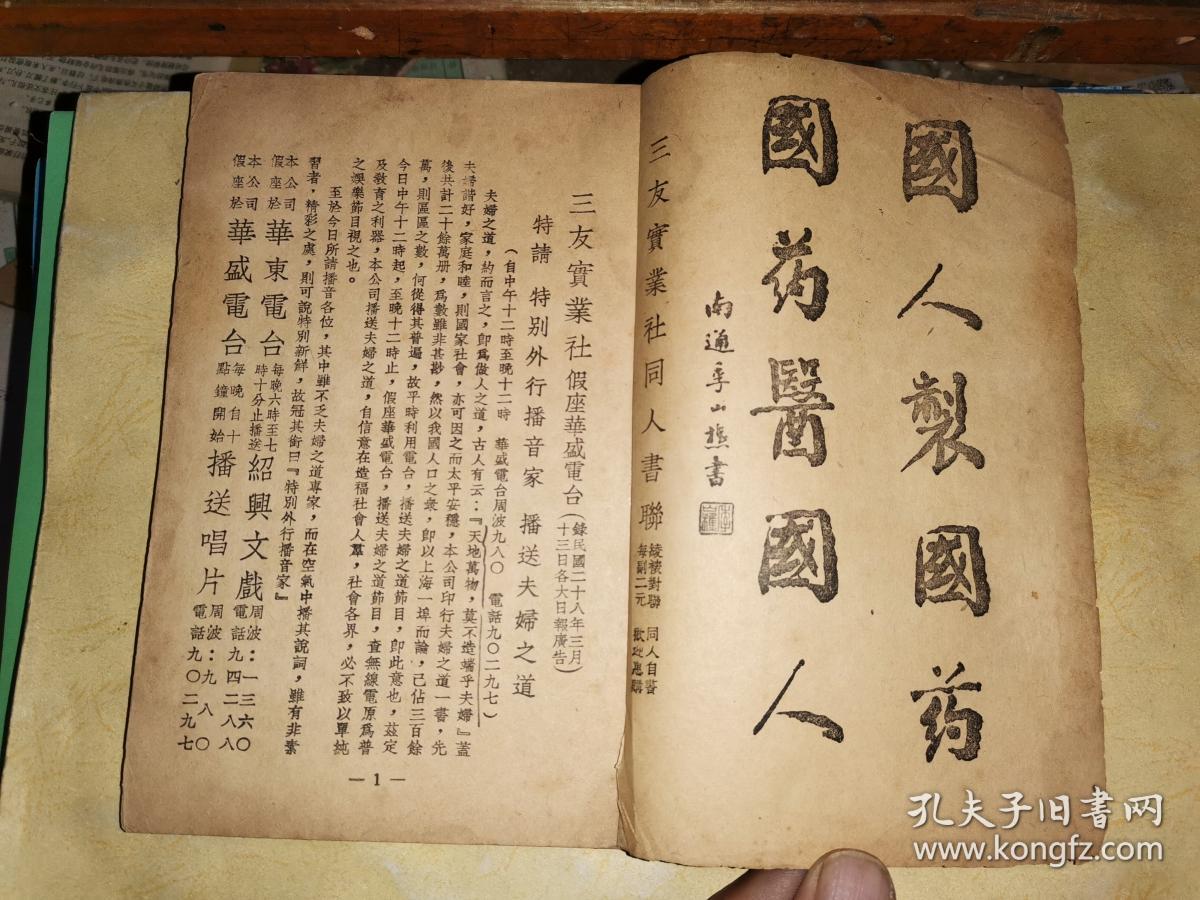 國人製國药
國药醫國人
南通季山樵書
三友實業社同人書聯
綾裱對聯 同人自書
每副二元 歡迎惠購
三友實業社假座華盛電台(錄民國二十八年三月十三日各大日報廣告)
特請 特別外行播音家 播送夫婦之道
(自中午十二時至晚十二時 華盛電台周波九八〇 電話九〇二九七)
夫婦之道,約而言之,卽爲做人之道,古人有云:『天地萬物,莫不造端乎夫婦』蓋
夫婦諧好,家庭和睦,則國家社會,亦可因之而太平安穩,本公司印行夫婦之道一書,先
後共計二十餘萬册,爲數雖非甚尠,然以我國人口之衆,卽以上海一埠而論,已佔三百餘
萬,則區區之數,何從得其普遍,故平時利用電台,播送夫婦之道節目,卽此意也,茲定
今日中午十二時起,至晚十二時止,假座華盛電台,播送夫婦之道節目,查無線電原爲普
及敎育之利器,本公司播送夫婦之道,自信意在造福社會人羣,社會各界,必不致以單純
之娛樂節目視之也。
至於今日所請播音各位,其中雖不乏夫婦之道專家,而在空氣中播其說詞,雖有非素
習者,精彩之處,則可說特別新鮮,故冠其銜曰『特別外行播音家』
本公司假座於華東電台每晚六時至七時十分止播送紹興文戲周波:一三六〇電話九四二八八
本公司假座於華盛電台每晚自十點鐘開始播送唱片周波:九八〇電話九〇二九七
— 1 —
孔夫子旧书网
www.kongfz.com